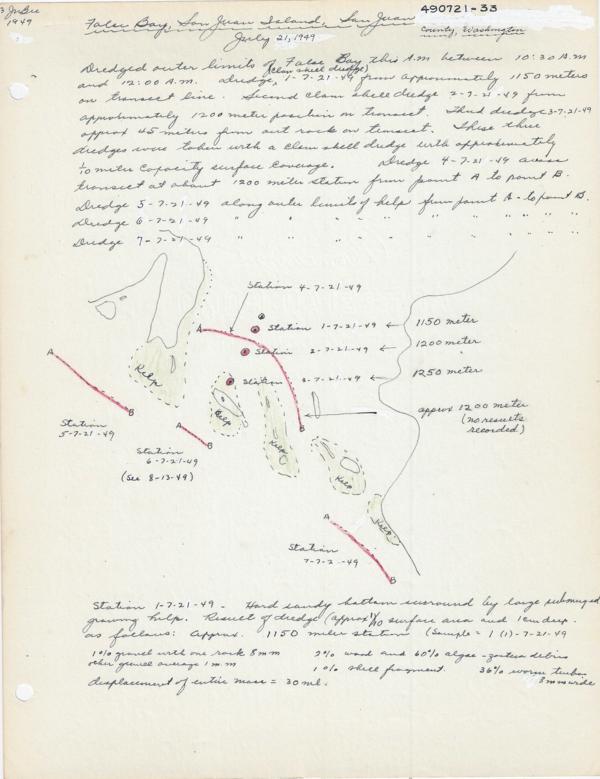 3 J. Bee
1949
490721-33
False Bay, San Juan Island, San Juan County, Washington
July 21, 1949
Dredged outer limits of False Bay this A.M between 10:30 A.M
(clam shell dredge)
and 12:00 A.M. Dredge, 1-7-21-49 from approximately 1150 meters
on transect line. Second clam shell dredge 2-7-21-49 from
approximately 1200 meter position on transect. Third dredge 3-7-21-49
approx 45 meters from out rock on transect. These three
dredges were taken with a clam shell dredge with approximately
1/10 meter capacity surface coverage. Dredge 4-7-21-49 across
transect at about 1200 meter station from point A to point B.
Dredge 5-7-21-49 along outer limits of kelp from point A - to point B.
Dredge 6-7-21-49 " " " " " " " " " " "
Dredge 7-7-21-49 " " " " " " " " " " "
Station 4-7-21-49
A
Station 1-7-21-49 ← 1150 meter
Station 2-7-21-49 ← 1200 meter
A
Kelp
Station 3-7-21-49 ← 1250 meter
approx 1200 meter
(no results
recorded)
B
A
Kelp
B
B
Station
5-7-21-49
Kelp
Station
6-7-21-49
(See 8-13-49)
Kelp
A
Kelp
Station
7-7-2 -49
B
Station 1-7-21-49 - Hard sandy bottom surround by large submerged
growing kelp. Result of dredge (approx 1/10 surface area and 1 cm deep.
as follows: Approx. 1150 meter station (Sample = 1 (1)-7-21-49
1% gravel with one rock 8 mm 2% wood and 60% algae - zostera debris
other gravel average 1 m.m 1% shell fragment. 36% worm tubes
8 mm wide
displacement of entire mass = 30 ml.